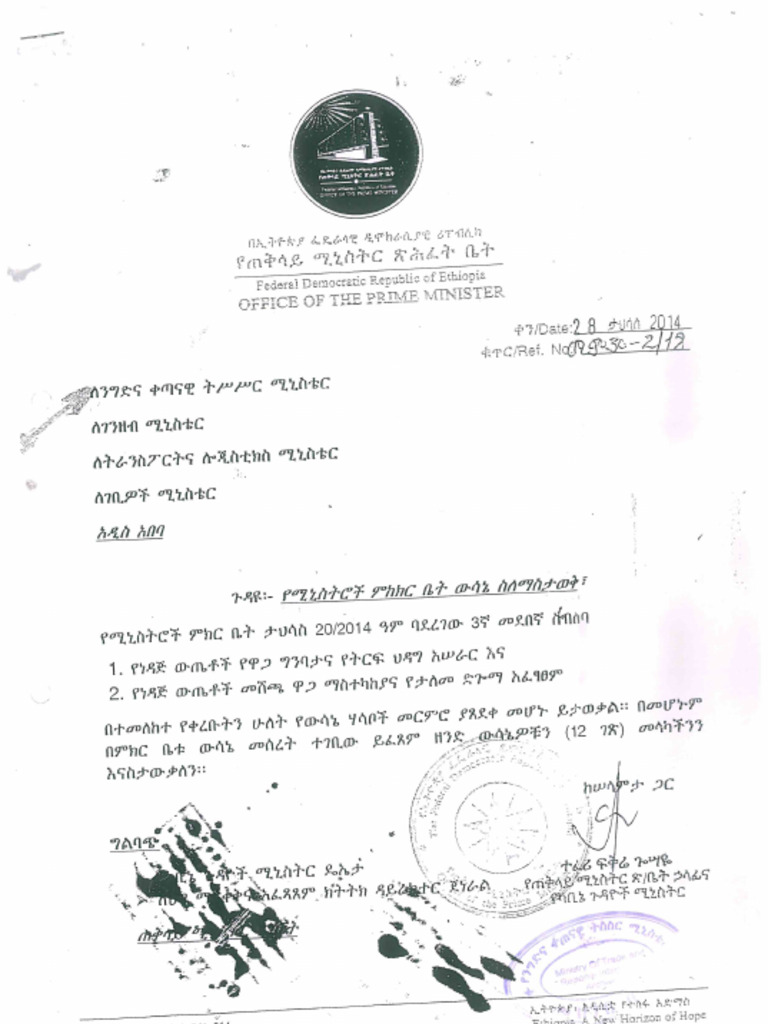 በኢትዮጵያ ፌዴራላዊ ዲሞክራሲያዊ ሪፐብሊክ
የጠቅላይ ሚኒስትር ጽሕፈት ቤት
Federal Democratic Republic of Ethiopia
OFFICE OF THE PRIME MINISTER
ቀን/Date: 28 ታህሳስ 2014
ቁጥር/Ref. No
ለንግድና ቀጣናዊ ትሥሥር ሚኒስቴር
ለገንዘብ ሚኒስቴር
ለትራንስፖርትና ሎጂስቲክስ ሚኒስቴር
ለገቢዎች ሚኒስቴር
አዲስ አበባ
ጉዳዩ፡- የሚኒስትሮች ምክክር ቤት ውሳኔ ስለማስታወቅ፣
የሚኒስትሮች ምክር ቤት ታህሳስ 20/2014 ዓም ባደረገው 3ኛ መደበኛ ስብሰባ
1. የነዳጅ ውጤቶች የዋጋ ግንባታና የትርፍ ህዳግ አሠራር እና
2. የነዳጅ ውጤቶች መሸጫ ዋጋ ማስተካከያና የታለመ ድጎማ አፈፃፀም
በተመለከተ የቀረቡትን ሁለት የውሳኔ ሃሳቦች መርምሮ ያጸደቀ መሆኑ ይታወቃል፡፡ በመሆኑም
በምክር ቤቱ ውሳኔ መሰረት ተገቢው ይፈጸም ዘንድ ውሳኔዎቹን (12 ገጽ) መላካችንን
እናስታውቃለን፡፡
ከሠላምታ ጋር
ተፈሪ ፍቅሬ ጐሣዬ
የጠቅላይ ሚኒስትር ጽ/ቤት ኃላፊና
የካቢኔ ጉዳዮች ሚኒስትር
ግልባጭ
ጉዳዮች ሚኒስትር ዴኤታ
አፈጻጸም ክትትክ ዳይሬክተር ጀነራል
የንግድና ቀጣናዊ ትስስር ሚኒስቴር
Ministry Of Trade and
ኢትዮጵያ፡ አዲሲቷ የተስፋ አድማስ
Ethiopia A New Horizon of Hope